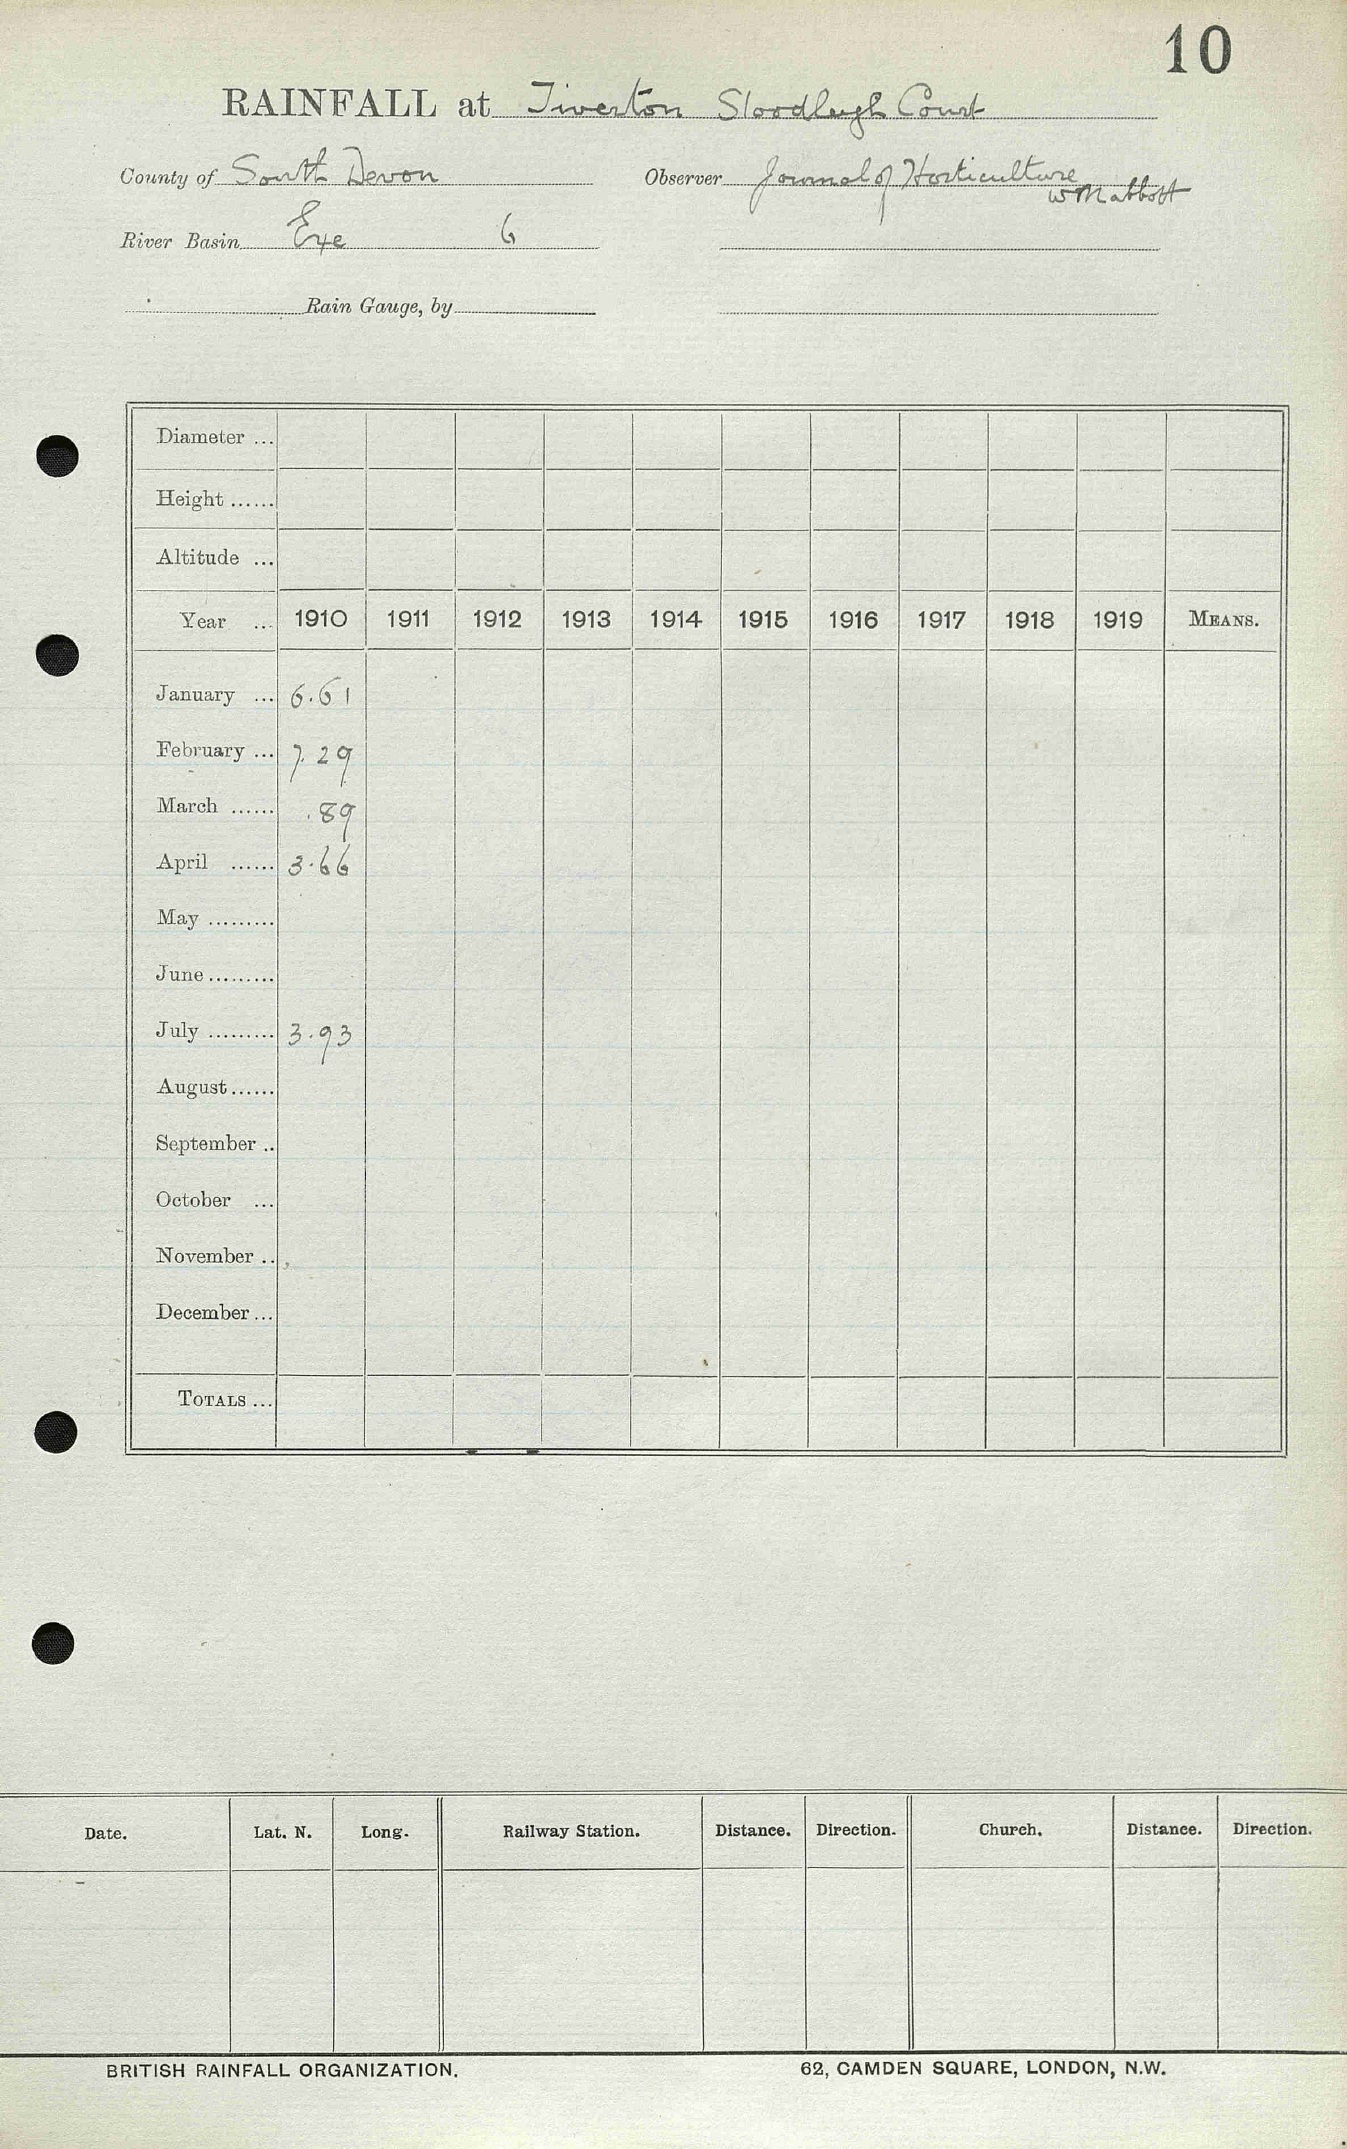 10
RAINFALL at Tiverton Stoodleigh Court
County of South Devon Observer Journal of Horticulture
W Mabbott
River Basin Exe 6
Rain Gauge, by
Diameter ...
Height ......
Altitude ...
Year ... 1910 1911 1912 1913 1914 1915 1916 1917 1918 1919 MEANS.
January ... 6.61
February ... 7.29
March ...... .89
April ...... 3.66
May .........
June .........
July ......... 3.93
August ......
September ..
October ...
November ..
December ...
TOTALS ...
Date. Lat. N. Long. Railway Station. Distance. Direction. Church. Distance. Direction.
BRITISH RAINFALL ORGANIZATION. 62, CAMDEN SQUARE, LONDON, N.W.